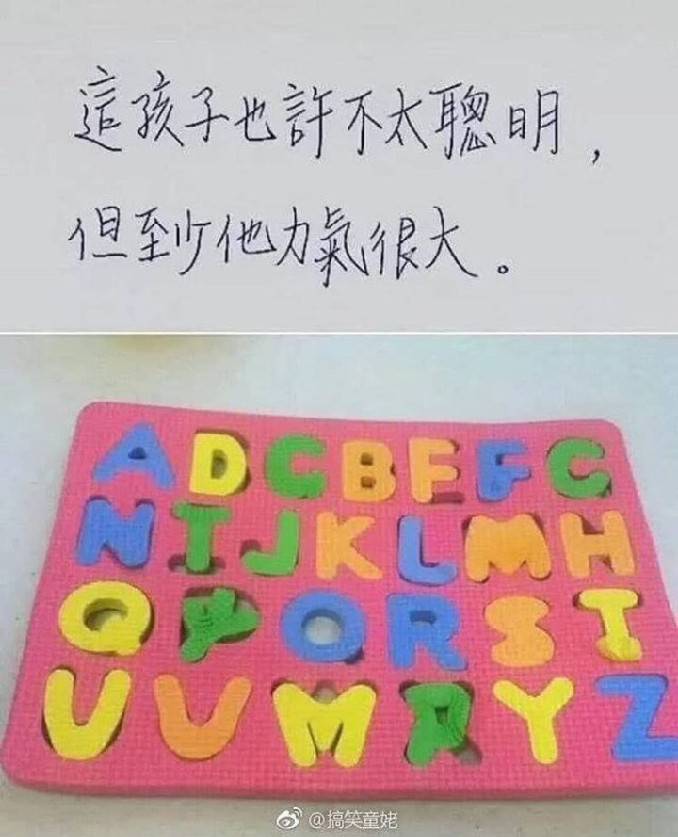 這孩子也許不太聰明，
但至少他力氣很大。
A D C B F F G
N T J K L M H
Q O R S I
U V M P Y Z
@搞笑童姥